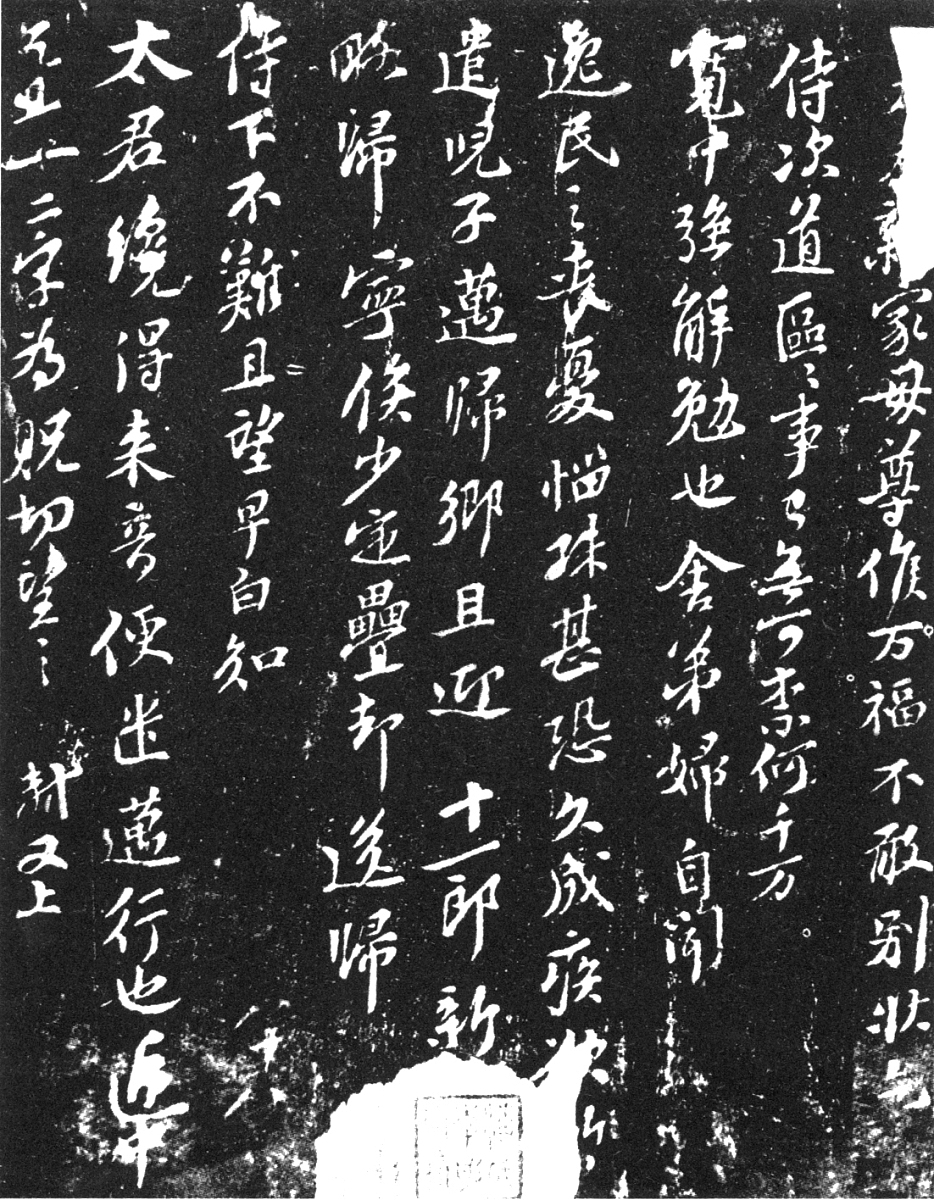 冢母尊候万福不敢别状
侍次道區〻事已無可柰何千万
寬中強解勉也舍弟婦自聞
逸民之喪憂惱殊甚恐久成疾欲
遣兒子邁歸鄉且迎十一郎新
略歸寧俟少定疊却送歸
侍下不難且望早白知
太君纔得來音便遣邁行也
二字為貺切望〻軾又上